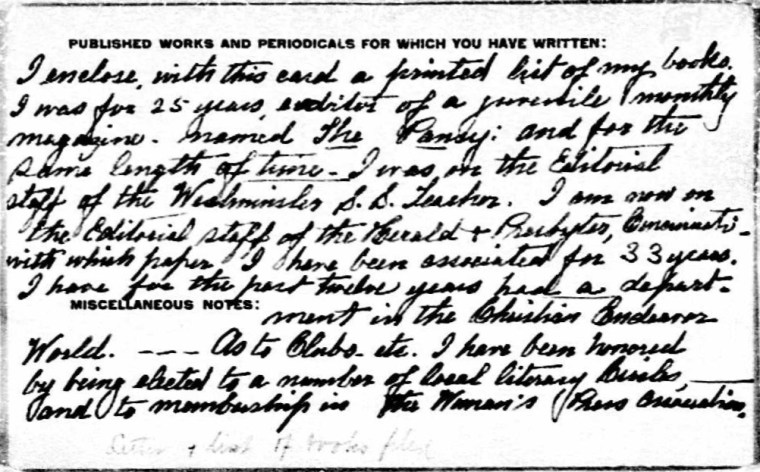 PUBLISHED WORKS AND PERIODICALS FOR WHICH YOU HAVE WRITTEN:
I enclose, with this card a printed list of my books.
I was for 25 years, editor of a juvenile monthly
magazine - named The Pansy: and for the
same length of time - I was, on the Editorial
staff of the Westminster S. S. Teacher. I am now on
the Editorial staff of the Herald + Presbyter, Cincinnati -
with which paper I have been associated for 33 years.
I have for the past twelve years had a depart-
MISCELLANEOUS NOTES:
ment in the Christian Endeavor
World. - - - As to Clubs - etc. I have been honored
by being elected to a number of local literary Circles,
and to membership in the Woman's Press Association.
Letter + list of books filed